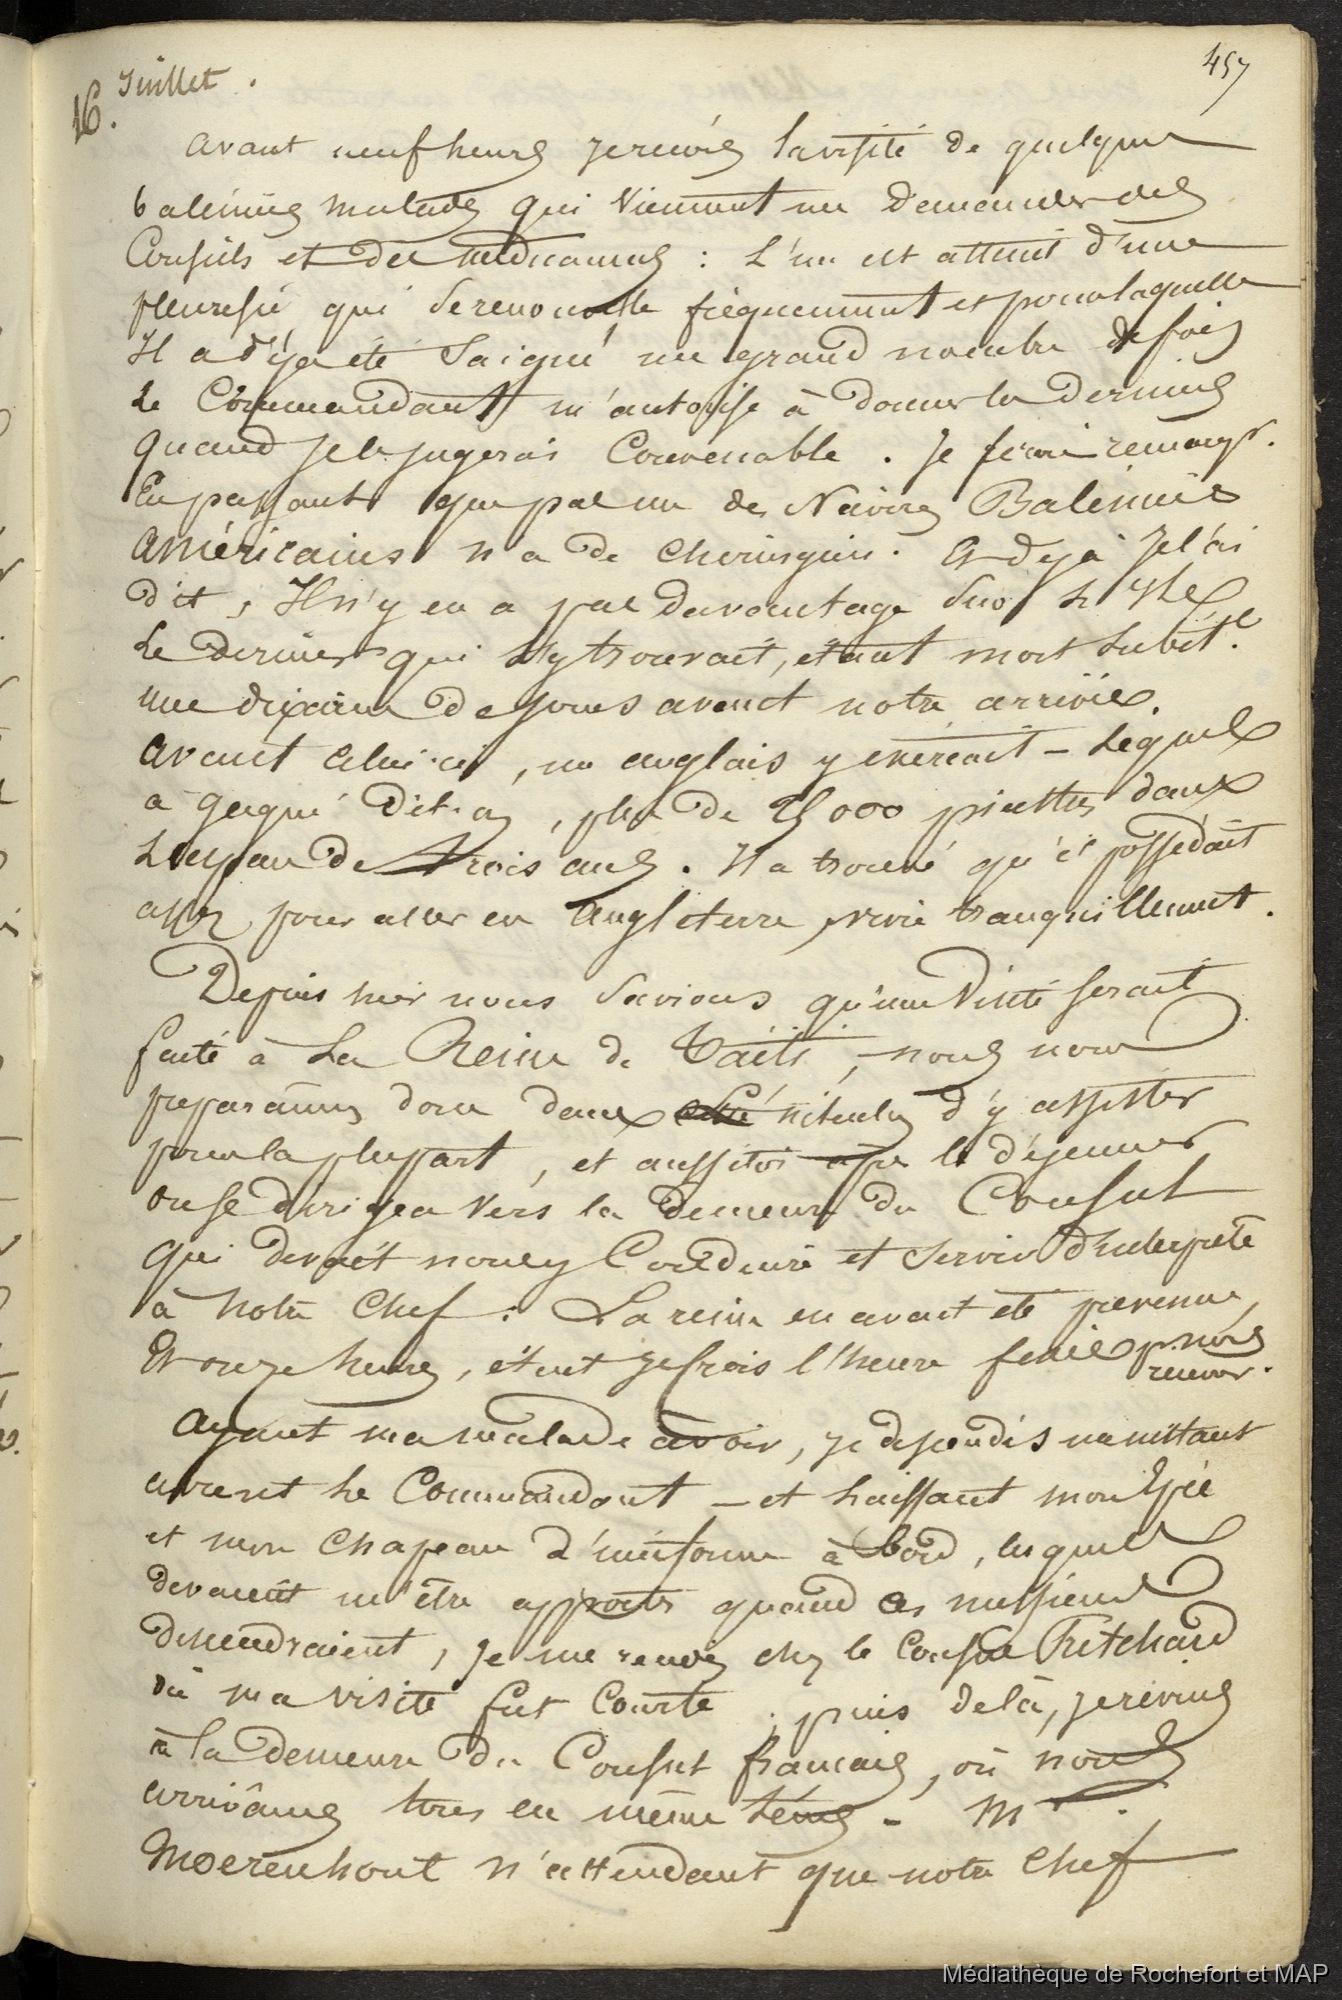 457
16. Juillet.
avant neuf heures je reçois la visite de quelques
baleiniers malades qui viennent me demander des
Conseils et des médicamens : L'un est atteint d'une
pleuresie qui se renouvelle fréquemment et pour laquelle
Il a déja été Saigné un grand nombre de fois
Le Commandant m'autorise à donner les derniers
quand je le jugerais Convenable. Je ferai remarqr.
En passant que pas un des Navires Baleiniers
Américains n'a de chirurgien. Et déjà je l'ai
dit, Il n'y en a pas davantage sur L'Isle
Le dernier qui s'y trouvait, étant mort subitt.
une dixaine de jours avant notre arrivée.
avant celui-ci, un anglais y exercait - Lequel
a gagné dit-on, plus de 25000 piastres dans
L'espace de trois ans. Il a trouvé qu'il possedait
assez pour aller en Angleterre, vivre tranquillement.
Depuis hier nous Savions qu'une Visite serait
faite à La Reine de Taïti, nous nous
preparâmes donc dans d'y assister
pour la plupart, et aussitôt après le déjeuner
on se dirigea vers la demeure du Consul
qui devait nous y Conduire et servir d'interprète
à notre Chef : La reine en avait été prevenue,
Et onze heures, étant je crois l'heure fixée pr. nous
recevoir.
Ayant ma malade à voir, je descendis un instant
avant Le Commandant - et Laissant mon Epée
et mon Chapeau d'uniforme à bord, lesquels
devaient m'être apportés quand ces messieurs
descendraient, je me rendis chez le Consul Pritchard
où ma visite fut Courte ; puis delà, je revins
à la demeure du Consul français, où nous
arrivâmes tous en même tems - Mr.
Moerenhout n'attendant que notre Chef
Médiathèque de Rochefort et MAP